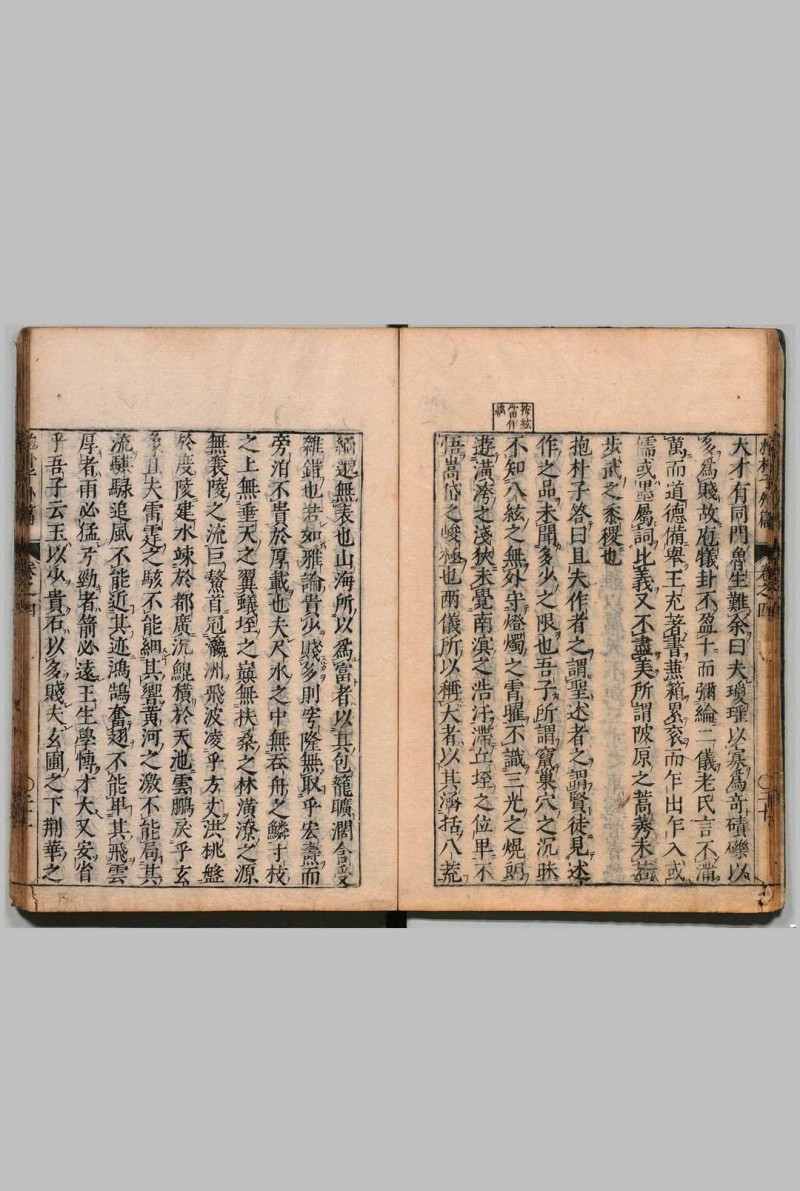 抱朴子外篇 卷之四
大才有同門魯生難余曰夫瓊瑤以寡爲奇磧礫以
多爲賤故庖犧卦不盈十而彌綸二儀老氏言不滿
萬而道德備舉王充著書蒹箱累袠而乍出乍入或
儒或墨屬詞比義又不盡美所謂陂原之蒿莠未若
步武之黍稷也
抱朴子答曰且夫作者之謂聖述者之謂賢徒見述
作之品未聞多少之限也吾子所謂竄巢穴之沉昧
不知八紘之無外守燈燭之宵曜不識三光之熀朗
遊潢洿之淺狹未覺南溟之浩汗滯丘垤之位埤不
悟嵩岱之峻極也兩儀所以稱大者以其涵括八荒
緬邈無表也山海所以爲富者以其包籠曠濶含受
雜錯也若如雅論貴少賤多則穹隆無取乎宏燾而
旁泊不貴於厚載也夫尺水之中無吞舟之鱗寸枝
之上無垂天之翼蟻垤之巔無扶桑之林潢潦之源
無襄陵之流巨鰲首冠瀛洲飛波凌乎方丈洪桃盤
於度陵建木竦於都廣沉鯤橫於天池雲鵬戾乎玄
象且夫雷霆之駭不能細其響黄河之激不能局其
流騏騄追風不能近其迹鴻鵠奮翅不能卑其飛雲
厚者雨必猛弓勁者箭必遠王生學博才大又安省
乎吾子云玉以少貴石以多賤夫玄圃之下荆華之
抱朴子外篇 卷之四